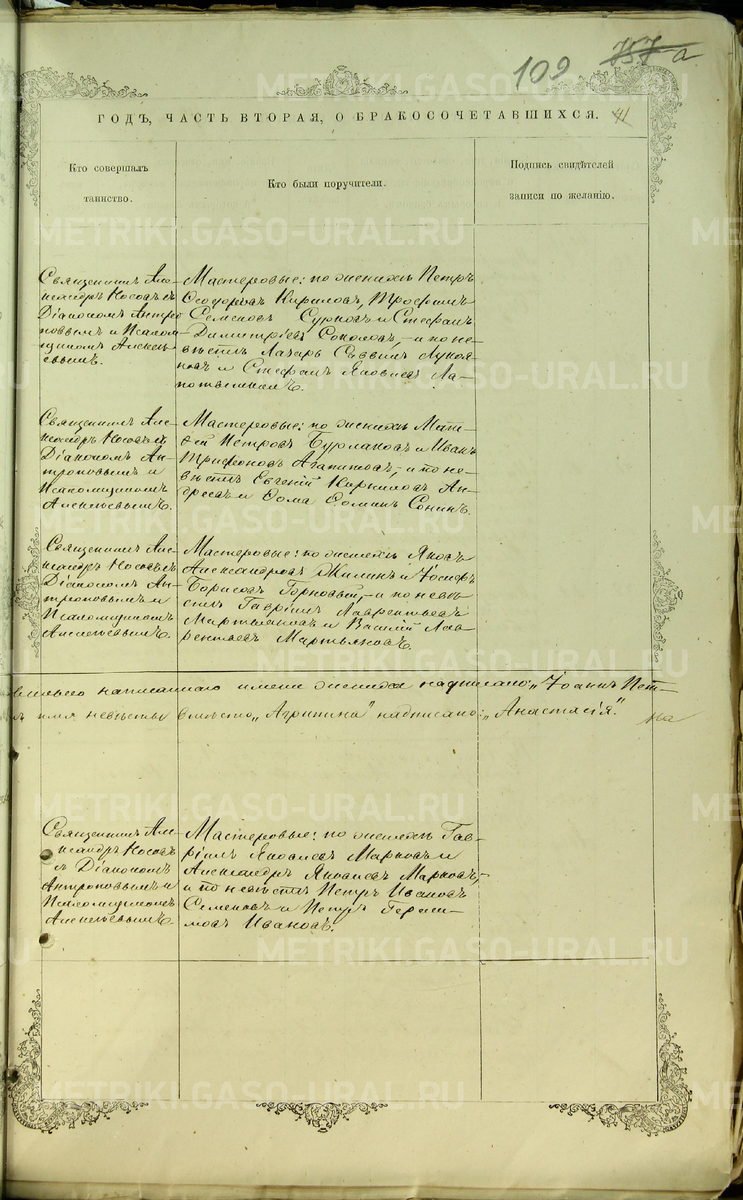 109 757 а
ГОДЪ, ЧАСТЬ ВТОРАЯ, О БРАКОСОЧЕТАВШИХСЯ. 41
Кто совершалъ
таинство.
Кто были поручители.
Подпись свидѣтелей
записи по желанію.
Священникъ Але-
ксандръ Носовъ съ
Діакономъ Антро
повымъ и Псалом-
щикомъ Алексѣ-
евымъ.
Мастеровые: по женихѣ Петръ
Ѳеодоровъ Кириловъ, Трофимъ
Семеновъ Сурновъ и Стефанъ
Димитріевъ Соколовъ, и по не-
вѣстѣ Лазарь Саввинъ Лукоя-
новъ и Стефанъ Яковлевъ Ла-
потниковъ.
Священникъ Але-
ксандръ Носовъ съ
Діакономъ Ан-
троповымъ и
Псаломщикомъ
Алексѣевымъ.
Мастеровые: по женихѣ Мат-
ѳей Петровъ Бурмановъ и Иванъ
Трифоновъ Агапитовъ, и по не-
вѣстѣ Евгеній Корниловъ Ан-
дреевъ и Ѳома Ѳоминъ Сонинъ.
Священникъ Але-
ксандръ Носовъ съ
Діакономъ Ан-
троповымъ и
Псаломщикомъ
Алексѣевымъ.
Мастеровые: по женихѣ Яковъ
Александровъ Жилинъ и Іосифъ
Борисовъ Горновый, и по невѣ-
стѣ Гавріилъ Лаврентьевъ
Мартьяновъ и Василій Лав-
рентьевъ Мартьяновъ.
написаннаго имени жениха надписано: „Іоаннъ Пет-
имя невѣсты вмѣсто „Агрипина" надписано: „Анастасія".
Священникъ Але-
ксандръ Носовъ
съ Діакономъ
Антроповымъ и
Псаломщикомъ
Алексѣевымъ.
Мастеровые: по женихѣ Гав-
ріилъ Яковлевъ Марковъ и
Александръ Яковлевъ Марковъ,
и по невѣстѣ Петръ Ивановъ
Семеновъ и Петръ Гераси-
мовъ Ивановъ.
METRIKI.GASO-URAL.RU